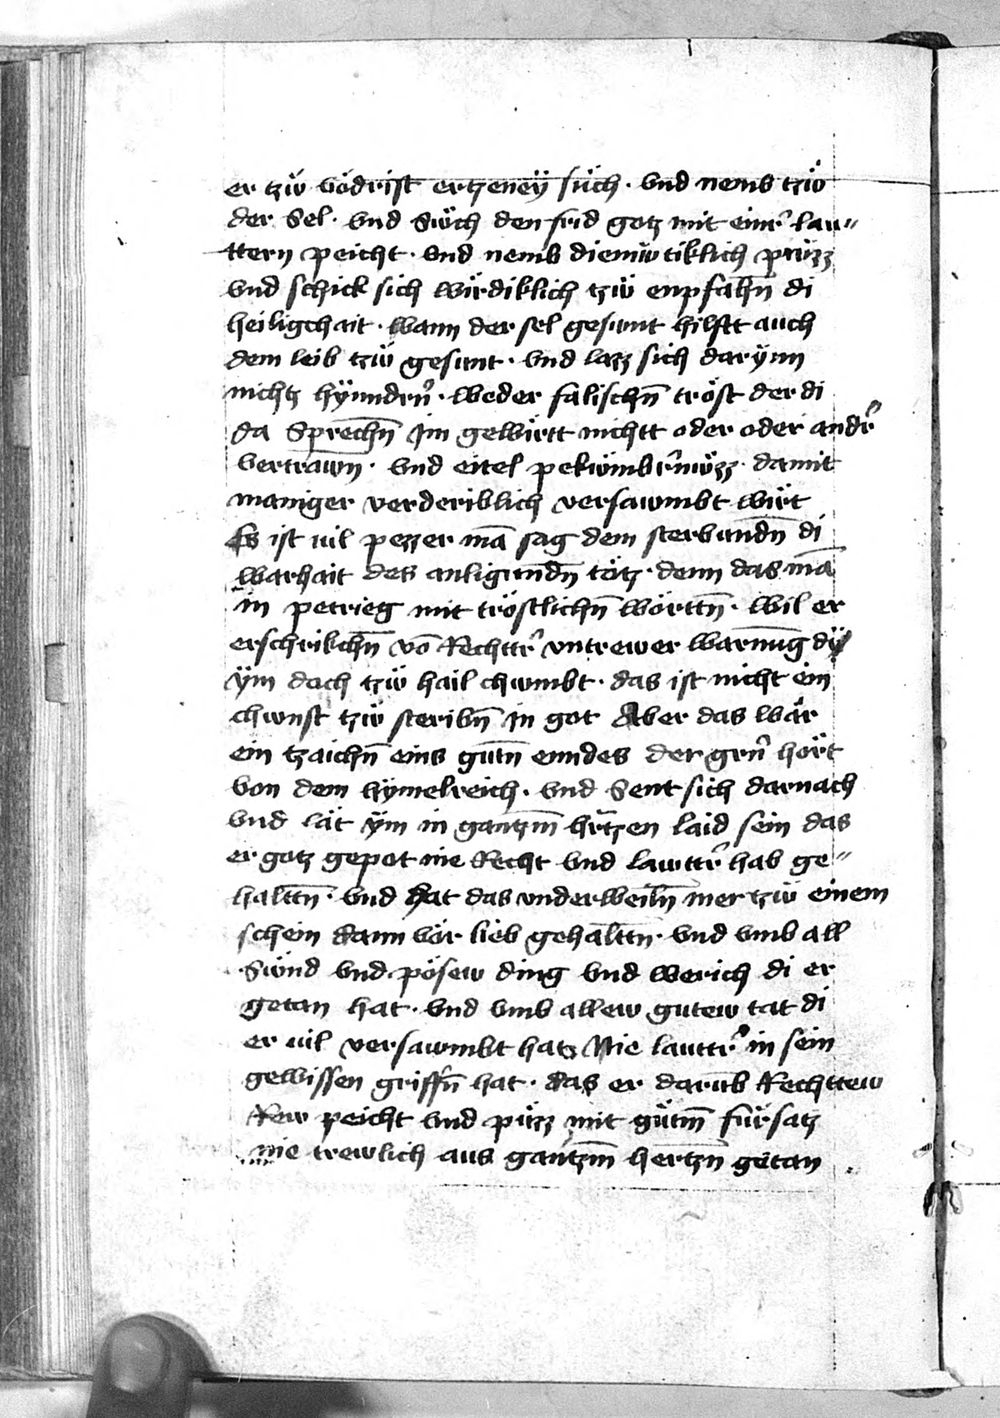 er tzw̋ vődrist ertzeneÿ sűch · vnd nemb tzw̋
der Sel · vnd Sw̋ch den frid gotz mit eimr̉ lau-
ttern peicht · vnd nemb diemw̋tiklich pw̋zz
vnd schick sich wirdiklich tzw̋ enpfahn̄ di
heiligchait · Wann der sel gesunt hilfft auch
dem leib tzw̋ gesunt · vnd lazz sich darÿnn
nichtz hÿnndrn̉ · Weder falischn̄ trőst der di
da Sprechn̄ Jm gewirtt nichtt oder oder andr̉
vertrawn · vnd eitel pekwmbr̉nw̋zz · damit
maniger verderiblich versawmbt wirt
Es ist uil pezzer mā sag dem sterbundn̄ di
Warhait des anligundn̄ tőtz · denn das mā
in petrieg mit tröstlichn̄ wörttn̄ · Wil er
erschrikchn̄ vō Rechttr̉ vntrewer Warnūg dÿ
ÿm doch tzw̋ hail chwmbt · das ist nicht ein
chwnst tzw̋ steribn̄ in got Aber das wär
ein tzaichn̄ eins gutn̄ enndes der grn̉ hört
von dem hÿmelreich · vnd Sent sich darnach
vnd lät ÿm in gantzm̄ hr̄tzen laid sein das
er gotz gepot nie Recht vnd lawttr̉ hab ge-
halttn̄ · vnd hat das vnderweiln̄ mer tzw̋ einem
schein dann vör lieb gehalttn̄ · vnd vmb all
Sw̋nd vnd pösew ding vnd werich di er
getan hat · vnd vmb allew gutew tat di
er uil versawmbt hatz Nie lauttr̉ in sein
gewissen griffn̄ hat · das er darūb Rechttew
Rew peicht vnd pűzz mit gűtm̄ fűrsatz
nie trewlich aus gantzm̄ hertzn̄ getan